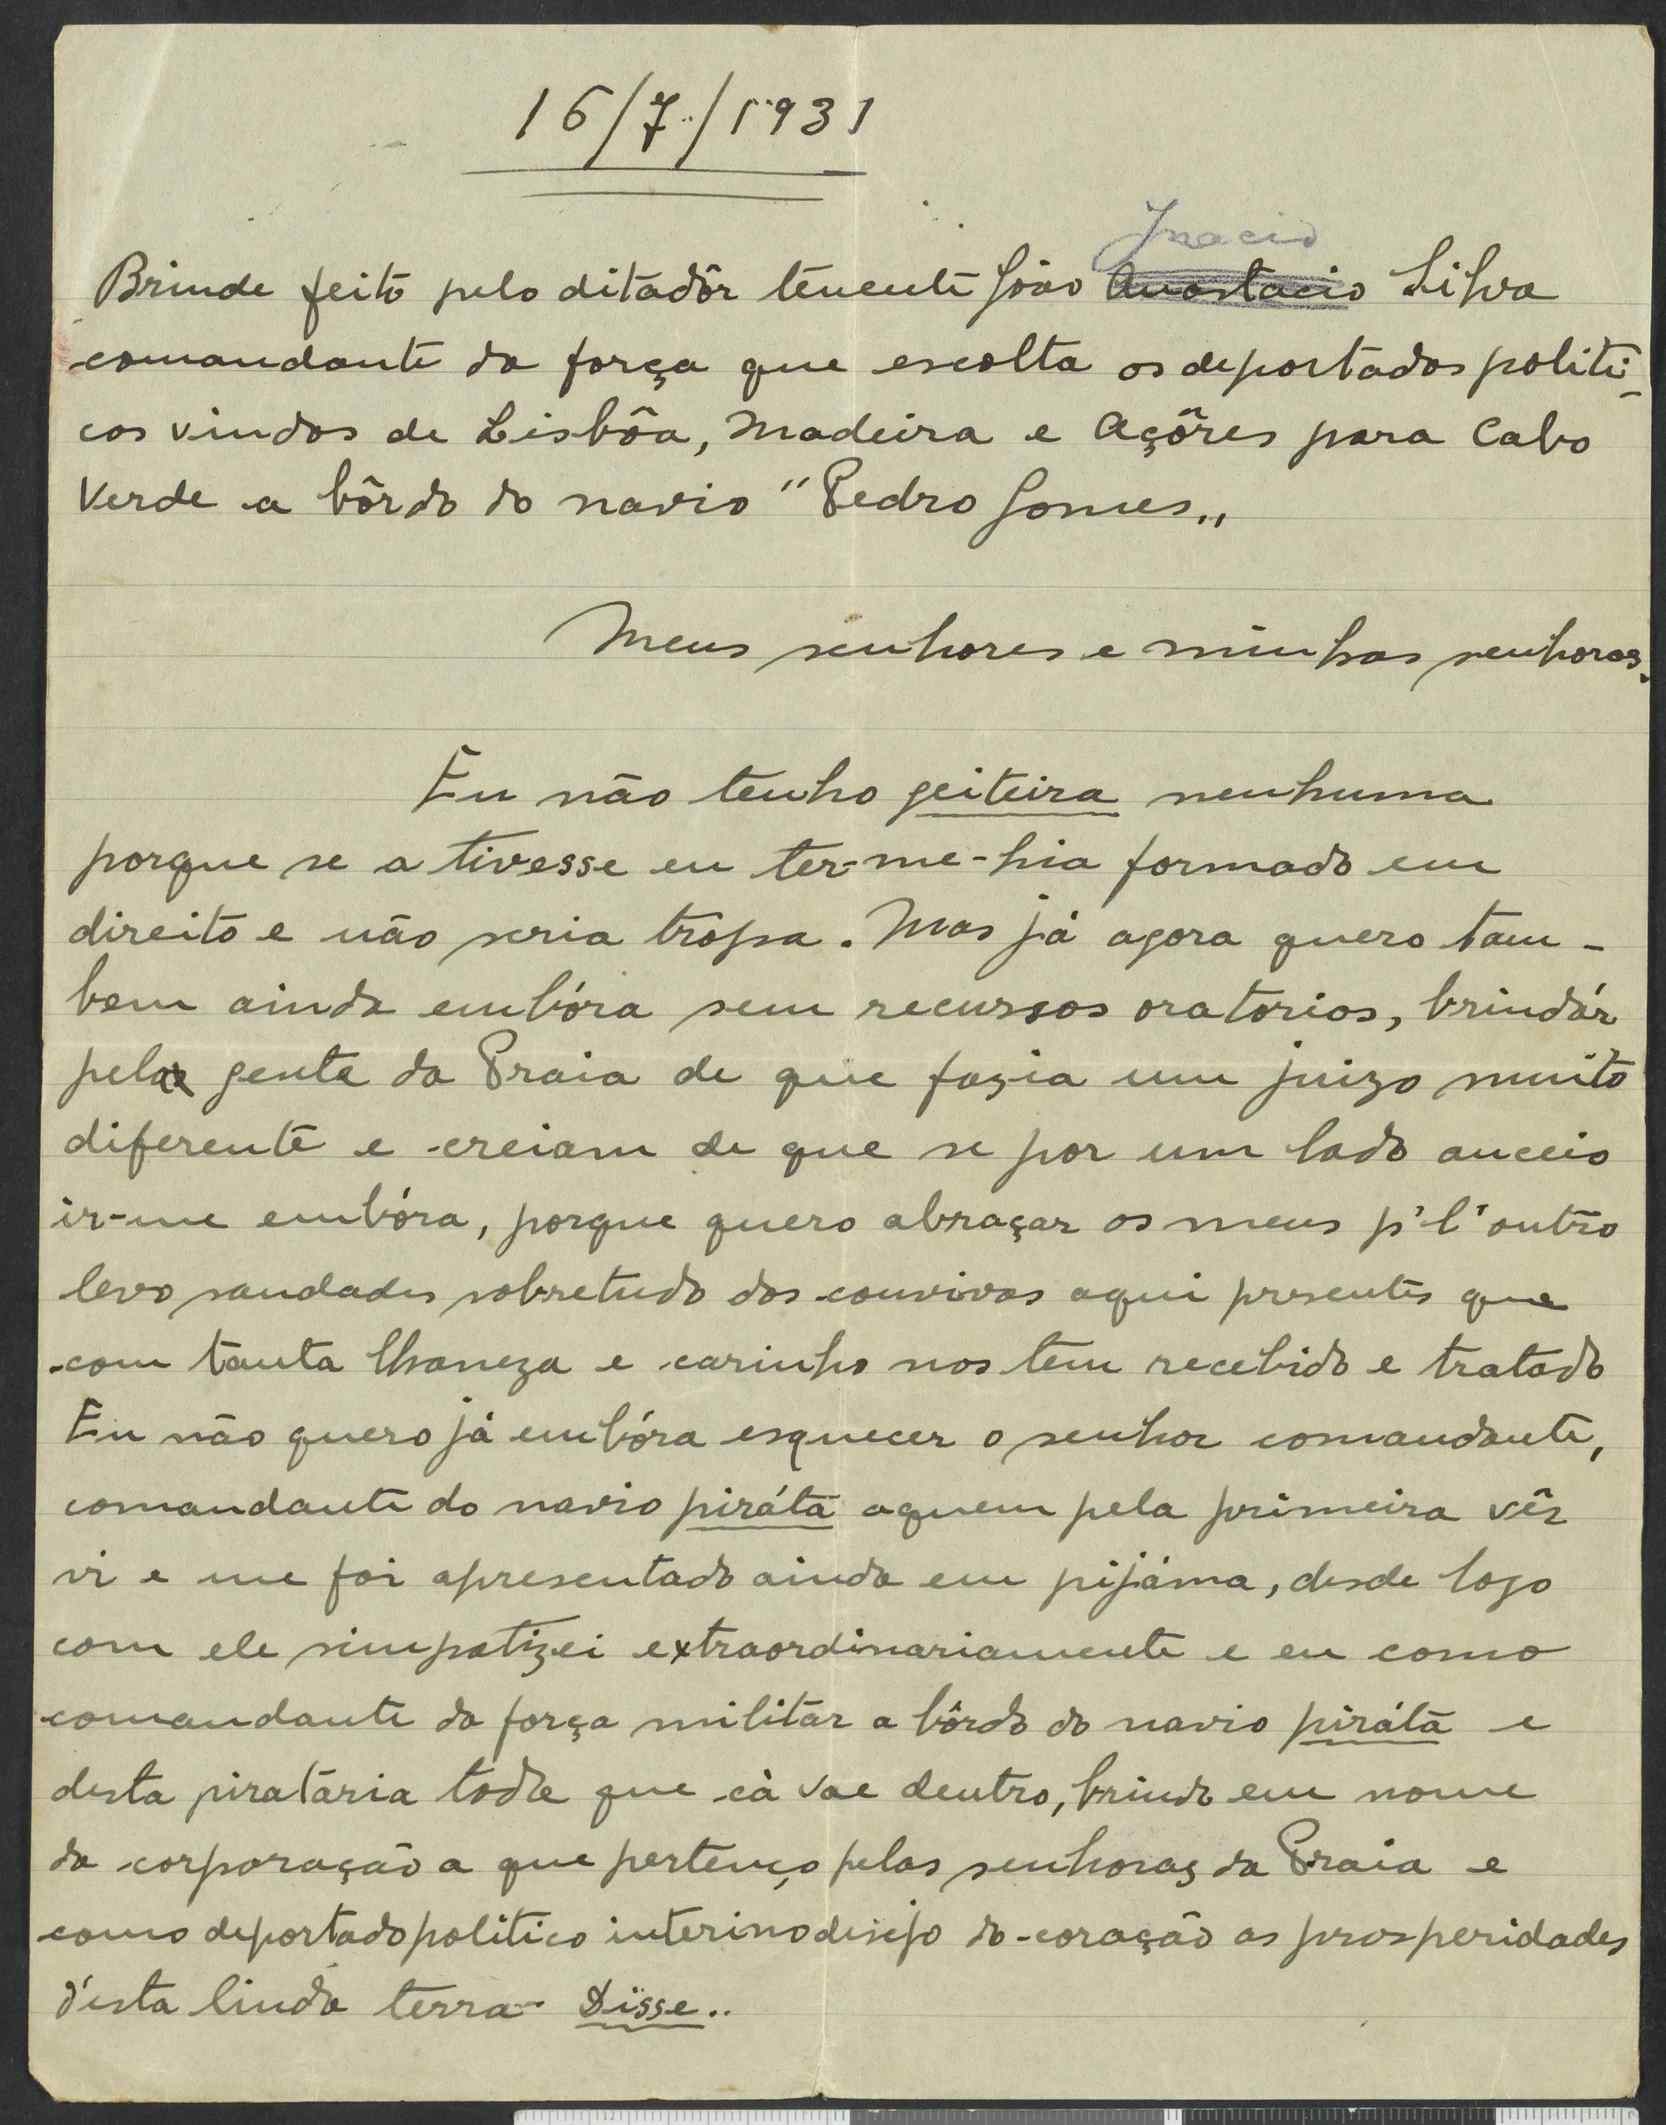 16/7/1931
Inacio
Brinde feito pelo ditadôr tenente João Anastacio Silva
comandante da força que escolta os deportados politi-
cos vindos de Lisbôa, Madeira e Açôres para Cabo
Verde a bôrdo do navio "Pedro Gomes„
Meus senhores e minhas senhoras.
Eu não tenho geiteira nenhuma
porque se a tivesse eu ter-me-hia formado em
direito e não seria tropa. Mas já agora quero tam-
bem ainda embóra sem recursos oratorios, brindár
pela gente da Praia de que fazia um juizo muito
diferente e creiam de que se por um lado anceio
ir-me embóra, porque quero abraçar os meus p'l'outro
levo saudades sobretudo dos convivas aqui presentes que
com tanta lhaneza e carinho nos tem recebido e tratado
Eu não quero já embóra esquecer o senhor comandante,
comandante do navio piráta aquem pela primeira vês
vi e me foi apresentado ainda em pijáma, desde logo
com ele simpatizei extraordinariamente e eu como
comandante da força militar a bôrdo do navio piráta e
desta pirataria toda que cà vae dentro, brindo em nome
da corporação a que pertenço pelas senhoras da Praia e
como deportado politico interino desejo do coração as prosperidades
d'esta linda terra - Disse..